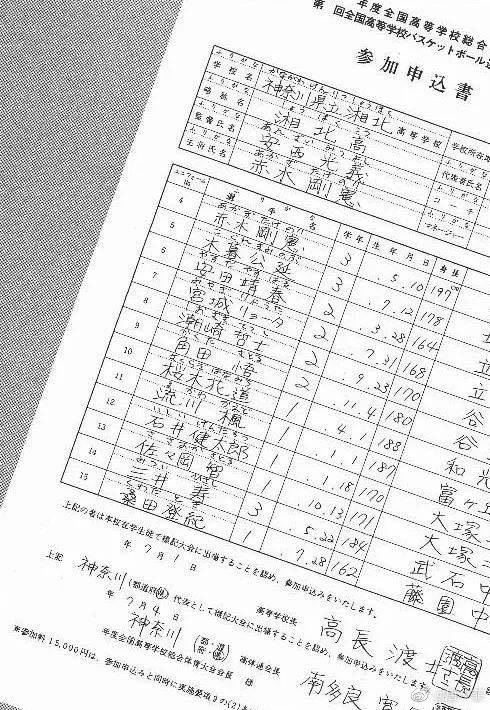 年度全国高等学校総合
第 回全国高等学校バスケットボール選
参加申込書
ふりがな かながわけんりつしょうほく
学校名 神奈川県立湘北 高等学校 学校所在地
ふりがな しょうほくこう
略称名 湘北高 代表者氏名
ふりがな あんざいみつよし
監督氏名 安西光義 コーチ
ふりがな あかぎたけのり
主将氏名 赤木剛憲 マネージャー
ユニフォームNo. 選手名 学年 生年月日 身長
4 赤木剛憲 3 .5.10 197cm
5 木暮公延 3 .7.12 178
6 安田靖春 2 .3.28 164
7 宮城リョータ 2 .7.31 168
8 潮崎哲士 2 .9.23 170
9 角田悟 2 .11.4 180
10 桜木花道 1 .4.1 188
11 流川楓 1 .1.1 187
12 石井健太郎 1 .1.18 170
13 佐々岡智 1 .10.13 171
14 三井寿 3 .5.22 184
15 桑田登紀 1 .7.28 162
上記の者は本校在学生徒で標記大会に出場することを認め、参加申込みをいたします。
年7月1日
高等学校長 高長渡
上記 神奈川 (都道府県) 代表として標記大会に出場することを認め、参加申込みをいたします。
年7月4日
神奈川 (都道府県) 高体連会長 南多良
年度全国高等学校総合体育大会会長 様
※参加料15,000円は、参加申込みと同時に実施要項9の(2)